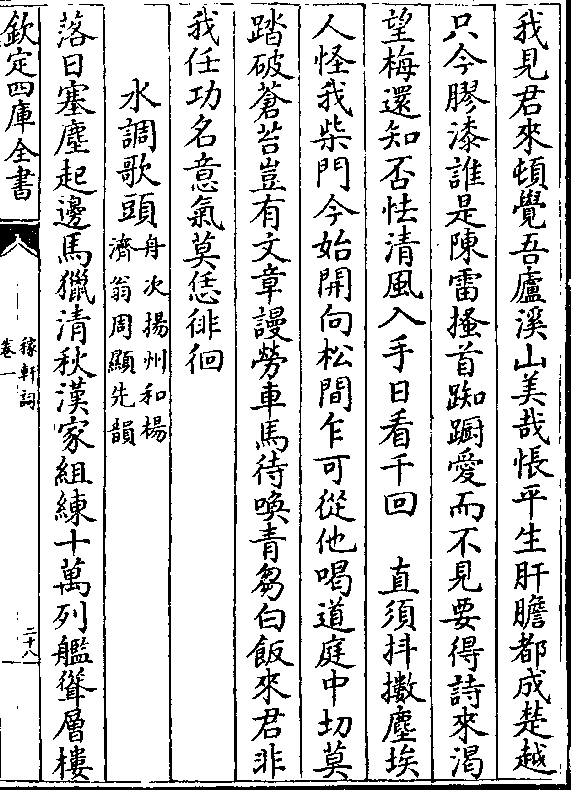 我見君來頓覺吾廬溪山美哉悵平生肝膽都成楚越
只今膠漆誰是陳雷搔首踟蹰愛而不見要得詩來渴
望梅還知否怯清風入手日看千回　直須抖擻塵埃
人怪我柴門今始開向松間乍可從他喝道庭中切莫
踏破蒼苔豈有文章謾勞車馬待喚青芻白飯來君非
我任功名意氣莫恁徘徊
水調歌頭舟次揚州和楊
濟翁周顯先韻
落日塞塵起邊馬獵清秋漢家組練十萬列艦聳層樓
欽定四庫全書
稼軒詞
卷一
二十八